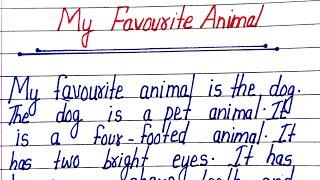 My Favourite Animal
My favourite animal is the dog.
The dog is a pet animal. It
is a four-footed animal. It
has two bright eyes. It has
sharp teeth and